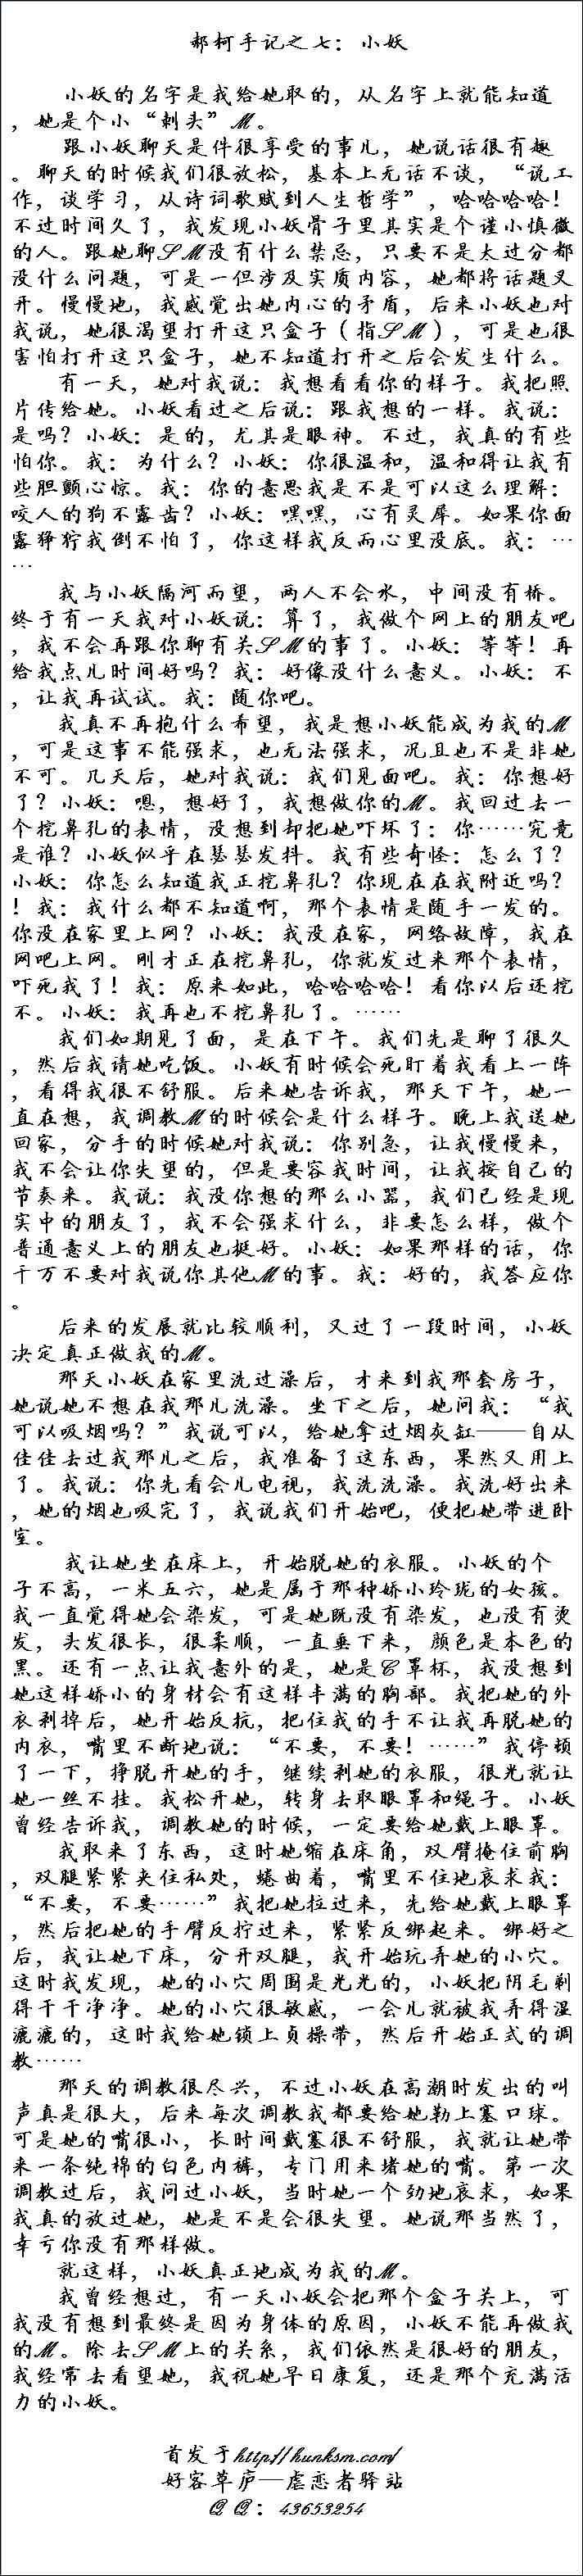 郝柯手记之七：小妖
小妖的名字是我给她取的，从名字上就能知道
，她是个小“刺头”M。
跟小妖聊天是件很享受的事儿，她说话很有趣
。聊天的时候我们很放松，基本上无话不谈，“说工
作，谈学习，从诗词歌赋到人生哲学”，哈哈哈哈！
不过时间久了，我发现小妖骨子里其实是个谨小慎微
的人。跟她聊SM没有什么禁忌，只要不是太过分都
没什么问题，可是一但涉及实质内容，她都将话题叉
开。慢慢地，我感觉出她内心的矛盾，后来小妖也对
我说，她很渴望打开这只盒子（指SM），可是也很
害怕打开这只盒子，她不知道打开之后会发生什么。
有一天，她对我说：我想看看你的样子。我把照
片传给她。小妖看过之后说：跟我想的一样。我说：
是吗？小妖：是的，尤其是眼神。不过，我真的有些
怕你。我：为什么？小妖：你很温和，温和得让我有
些胆颤心惊。我：你的意思我是不是可以这么理解：
咬人的狗不露齿？小妖：嘿嘿，心有灵犀。如果你面
露狰狞我倒不怕了，你这样我反而心里没底。我：…
…
我与小妖隔河而望，两人不会水，中间没有桥。
终于有一天我对小妖说：算了，我做个网上的朋友吧
，我不会再跟你聊有关SM的事了。小妖：等等！再
给我点儿时间好吗？我：好像没什么意义。小妖：不
，让我再试试。我：随你吧。
我真不再抱什么希望，我是想小妖能成为我的M
，可是这事不能强求，也无法强求，况且也不是非她
不可。几天后，她对我说：我们见面吧。我：你想好
了？小妖：嗯，想好了，我想做你的M。我回过去一
个挖鼻孔的表情，没想到却把她吓坏了：你……究竟
是谁？小妖似乎在瑟瑟发抖。我有些奇怪：怎么了？
小妖：你怎么知道我正挖鼻孔？你现在在我附近吗？
！我：我什么都不知道啊，那个表情是随手一发的。
你没在家里上网？小妖：我没在家，网络故障，我在
网吧上网。刚才正在挖鼻孔，你就发过来那个表情，
吓死我了！我：原来如此，哈哈哈哈！看你以后还挖
不。小妖：我再也不挖鼻孔了。……
我们如期见了面，是在下午。我们先是聊了很久
，然后我请她吃饭。小妖有时候会死盯着我看上一阵
，看得我很不舒服。后来她告诉我，那天下午，她一
直在想，我调教M的时候会是什么样子。晚上我送她
回家，分手的时候她对我说：你别急，让我慢慢来，
我不会让你失望的，但是要容我时间，让我按自己的
节奏来。我说：我没你想的那么小器，我们已经是现
实中的朋友了，我不会强求什么，非要怎么样，做个
普通意义上的朋友也挺好。小妖：如果那样的话，你
千万不要对我说你其他M的事。我：好的，我答应你
。
后来的发展就比较顺利，又过了一段时间，小妖
决定真正做我的M。
那天小妖在家里洗过澡后，才来到我那套房子，
她说她不想在我那儿洗澡。坐下之后，她问我：“我
可以吸烟吗？”我说可以，给她拿过烟灰缸——自从
佳佳去过我那儿之后，我准备了这东西，果然又用上
了。我说：你先看会儿电视，我洗洗澡。我洗好出来
，她的烟也吸完了，我说我们开始吧，便把她带进卧
室。
我让她坐在床上，开始脱她的衣服。小妖的个
子不高，一米五六，她是属于那种娇小玲珑的女孩。
我一直觉得她会染发，可是她既没有染发，也没有烫
发，头发很长，很柔顺，一直垂下来，颜色是本色的
黑。还有一点让我意外的是，她是C罩杯，我没想到
她这样娇小的身材会有这样丰满的胸部。我把她的外
衣剥掉后，她开始反抗，把住我的手不让我再脱她的
内衣，嘴里不断地说：“不要，不要！……”我停顿
了一下，挣脱开她的手，继续剥她的衣服，很光就让
她一丝不挂。我松开她，转身去取眼罩和绳子。小妖
曾经告诉我，调教她的时候，一定要给她戴上眼罩。
我取来了东西，这时她缩在床角，双臂掩住前胸
，双腿紧紧夹住私处，蜷曲着，嘴里不住地哀求我：
“不要，不要……”我把她拉过来，先给她戴上眼罩
，然后把她的手臂反拧过来，紧紧反绑起来。绑好之
后，我让她下床，分开双腿，我开始玩弄她的小穴。
这时我发现，她的小穴周围是光光的，小妖把阴毛剃
得干干净净。她的小穴很敏感，一会儿就被我弄得湿
漉漉的，这时我给她锁上贞操带，然后开始正式的调
教……
那天的调教很尽兴，不过小妖在高潮时发出的叫
声真是很大，后来每次调教我都要给她勒上塞口球。
可是她的嘴很小，长时间戴塞很不舒服，我就让她带
来一条纯棉的白色内裤，专门用来堵她的嘴。第一次
调教过后，我问过小妖，当时她一个劲地哀求，如果
我真的放过她，她是不是会很失望。她说那当然了，
幸亏你没有那样做。
就这样，小妖真正地成为我的M。
我曾经想过，有一天小妖会把那个盒子关上，可
我没有想到最终是因为身体的原因，小妖不能再做我
的M。除去SM上的关系，我们依然是很好的朋友，
我经常去看望她，我祝她早日康复，还是那个充满活
力的小妖。
首发于http://hunksm.com/
好客草庐—虐恋者驿站
QQ：43653254